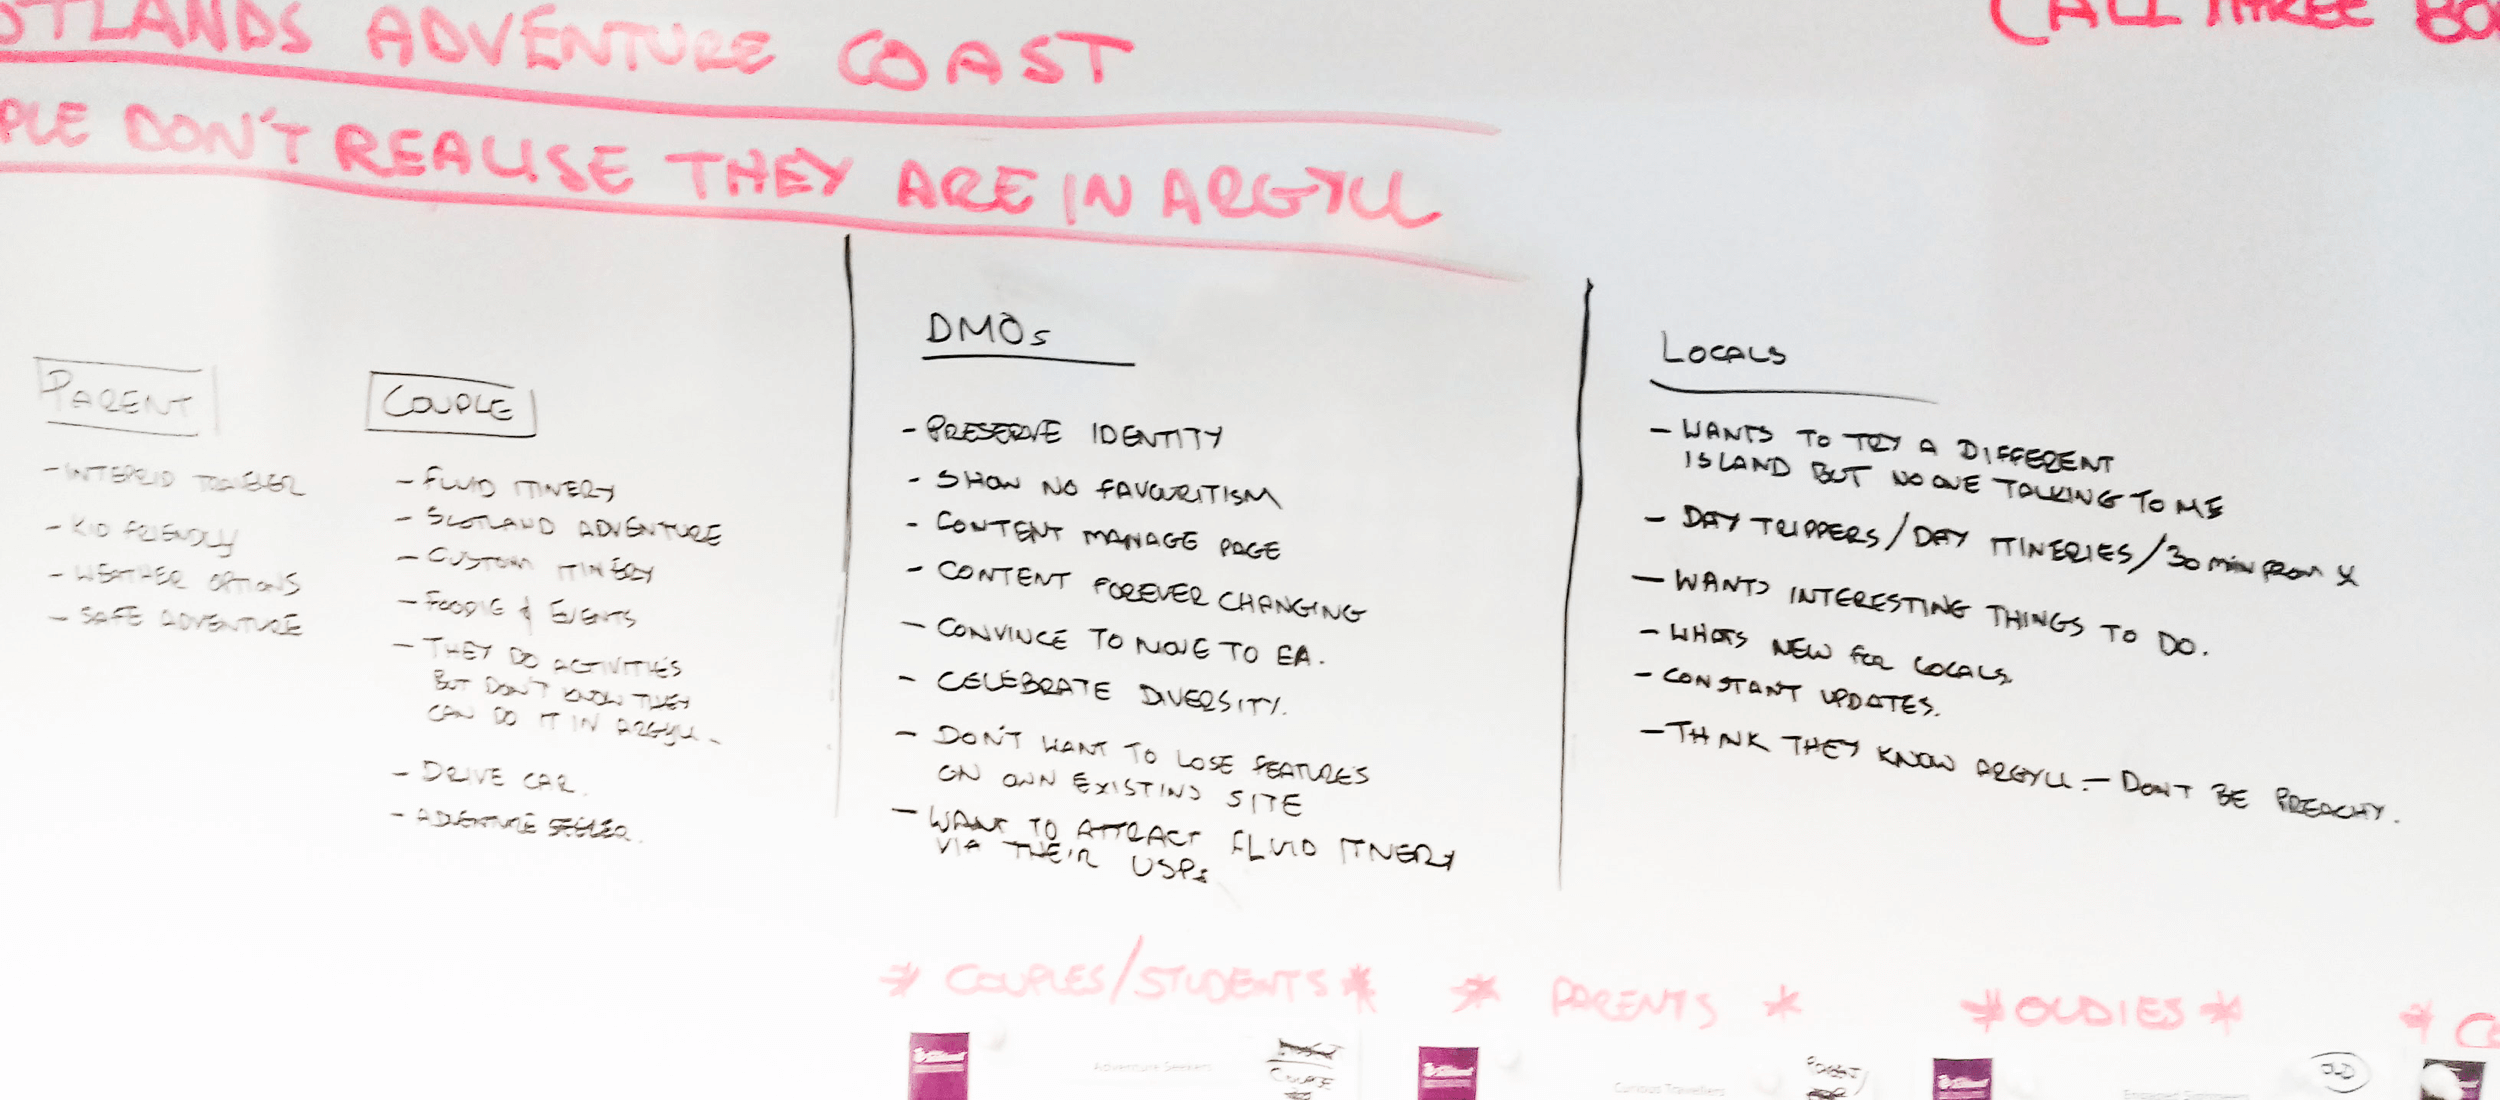 OTLANDS ADVENTURE COAST
CALL THREE BO
PLE DON'T REALISE THEY ARE IN ARGYLL
PARENT
- INTEPRID TRAVELER
- KID FRIENDLY
- WEATHER OPTIONS
- SAFE ADVENTURE
COUPLE
- FLUID ITINERY
- SCOTLAND ADVENTURE
- CUSTOM ITINERY
- FOODIE & EVENTS
- THEY DO ACTIVITIES
BUT DON'T KNOW THEY
CAN DO IT IN ARGYLL -
- DRIVE CAR.
- ADVENTURE SEEKER.
DMOs
- PRESERVE IDENTITY
- SHOW NO FAVOURITISM
- CONTENT MANAGE PAGE
- CONTENT FOREVER CHANGING
- CONVINCE TO MOVE TO EA.
- CELEBRATE DIVERSITY.
- DON'T WANT TO LOSE FEATURES
ON OWN EXISTING SITE
- WANT TO ATTRACT FLUID ITNERY
VIA THEIR USPs
LOCALS
- WANTS TO TRY A DIFFERENT
ISLAND BUT NO ONE TALKING TO ME
- DAY TRIPPERS / DAY ITINERIES / 30 min from X
- WANTS INTERESTING THINGS TO DO.
- WHATS NEW FOR LOCALS.
- CONSTANT UPDATES.
- THINK THEY KNOW ARGYLL. - DON'T BE PREACHY.
* COUPLES/STUDENTS *
* PARENTS *
* OLDIES *
* CO
Adventure Seekers
COUPLE
Curious Travellers
PARENT/
OLD